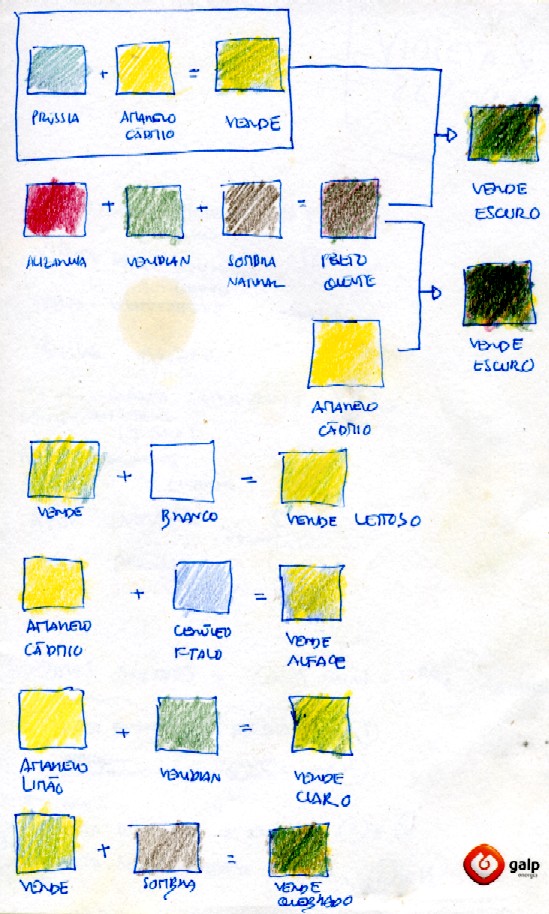 + =
PRÚSSIA AMARELO VERDE
CÁDMIO
VERDE
ESCURO
+ + =
ALIZARINA VERIDIAN SOMBRA PRETO
NATURAL QUENTE
VERDE
ESCURO
AMARELO
CÁDMIO
+ =
VERDE BRANCO VERDE LEITOSO
+ =
AMARELO CERÚLEO VERDE
CÁDMIO FTALO ALFACE
+ =
AMARELO VERIDIAN VERDE
LIMÃO CLARO
+ =
VERDE SOMBRA VERDE
QUEBRADO
galp
energia